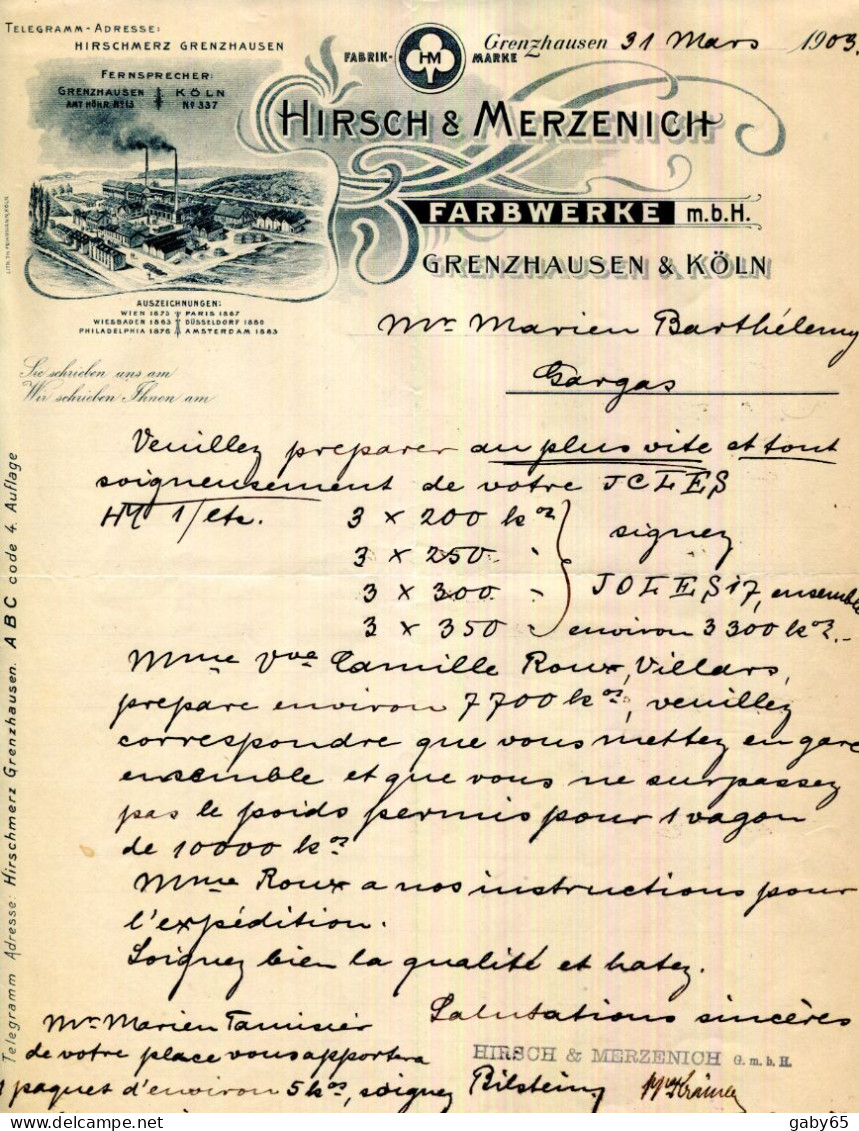 TELEGRAMM-ADRESSE:
HIRSCHMERZ GRENZHAUSEN
FERNSPRECHER:
GRENZHAUSEN KÖLN
AMT HÖHR No 13 No 337
FABRIK- HM MARKE
Grenzhausen 31 Mars 1903.
HIRSCH & MERZENICH
FARBWERKE m.b.H.
GRENZHAUSEN & KÖLN
AUSZEICHNUNGEN:
WIEN 1873 PARIS 1867
WIESBADEN 1863 DÜSSELDORF 1880
PHILADELPHIA 1876 AMSTERDAM 1883
Mr Marien Barthélemy
Gargas
Sie schrieben uns am
Wir schrieben Ihnen am
Veuillez preparer au plus vite et tout
soigneusement de votre JCLES
HM 1/etc. 3 x 200 kos signez
3 x 250 "
3 x 300 " JOLES 17, ensemble
3 x 350 " environ 3300 kos.-
Mme Vve Camille Roux, Villars,
prepare environ 7700 kos, veuillez
correspondre que vous mettez en gare
ensemble et que vous ne surpassez
pas le poids permis pour 1 vagon
de 10000 kos
Mme Roux a nos instructions pour
l'expédition.
Soignez bien la qualité et hatez.
Salutations sincères
HIRSCH & MERZENICH G.m.b.H.
Bilstein
Mr Marien Tamisier
de votre place vous apportera
1 paquet d'environ 5 kos, soignez
Telegramm Adresse: Hirschmerz Grenzhausen. ABC code 4. Auflage
gaby65